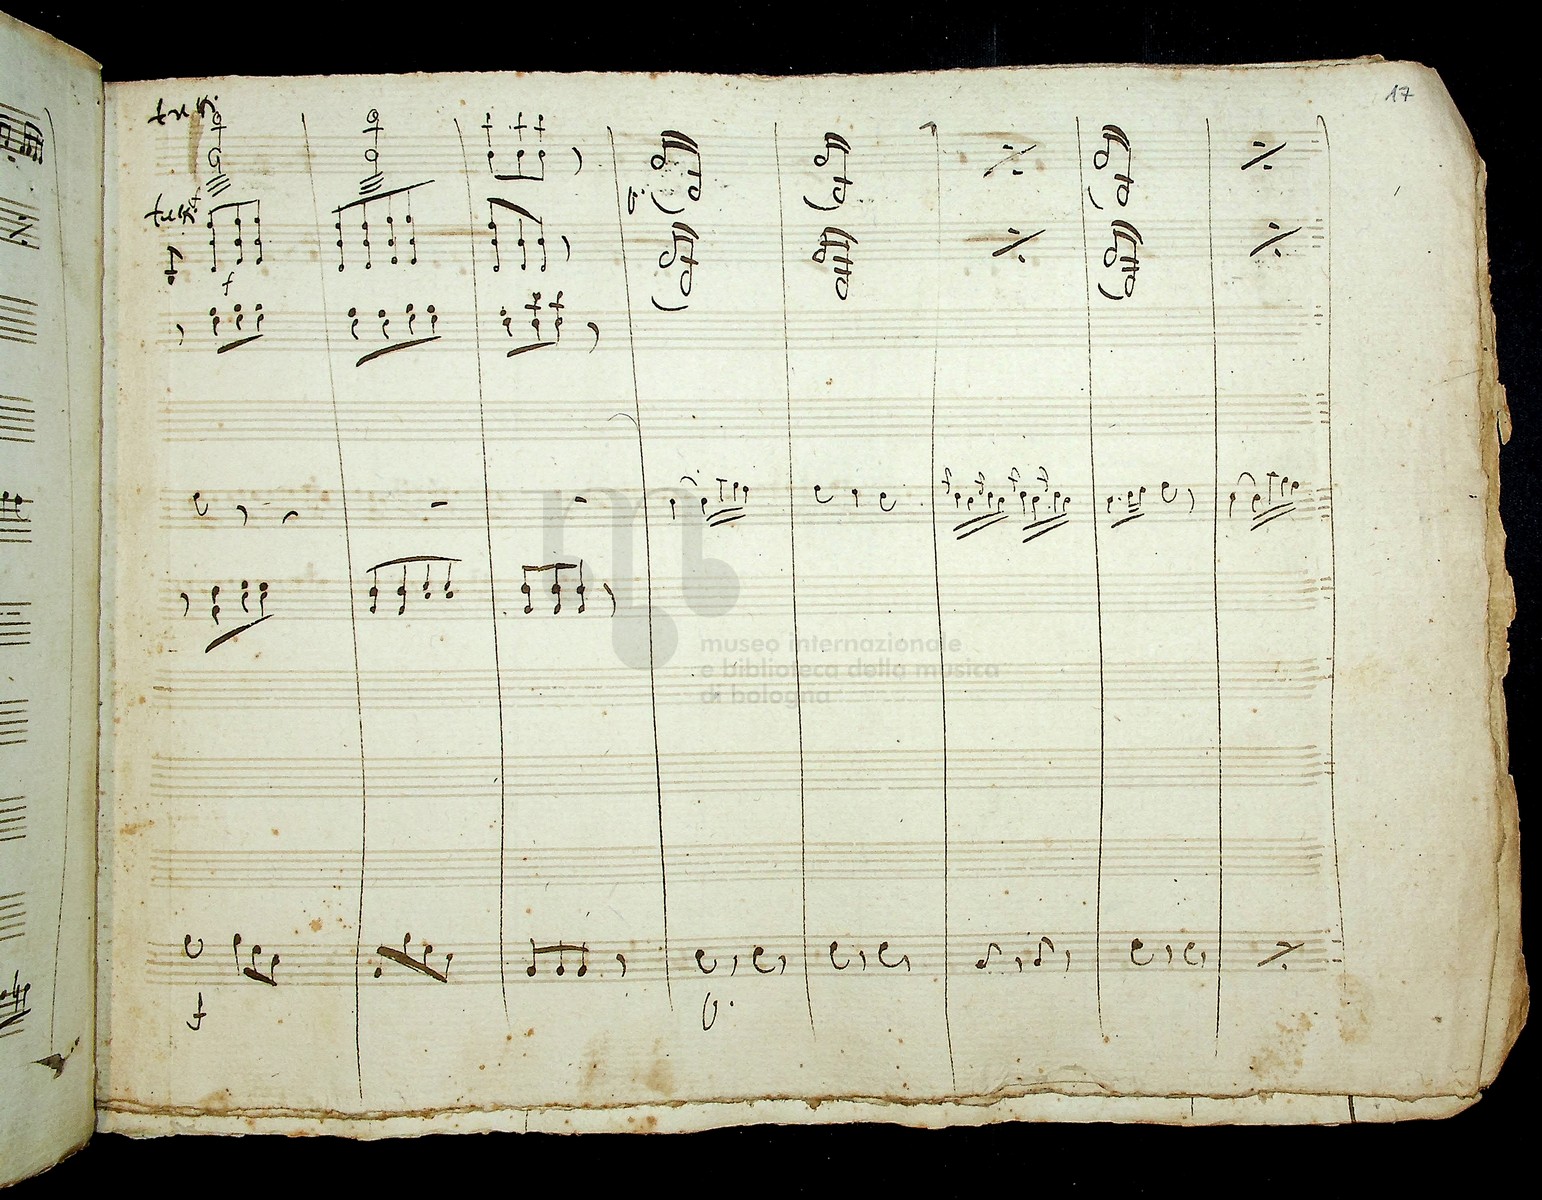 17
tutti
tutti
f
f
p.
museo internazionale
e biblioteca della musica
di bologna
f
p.